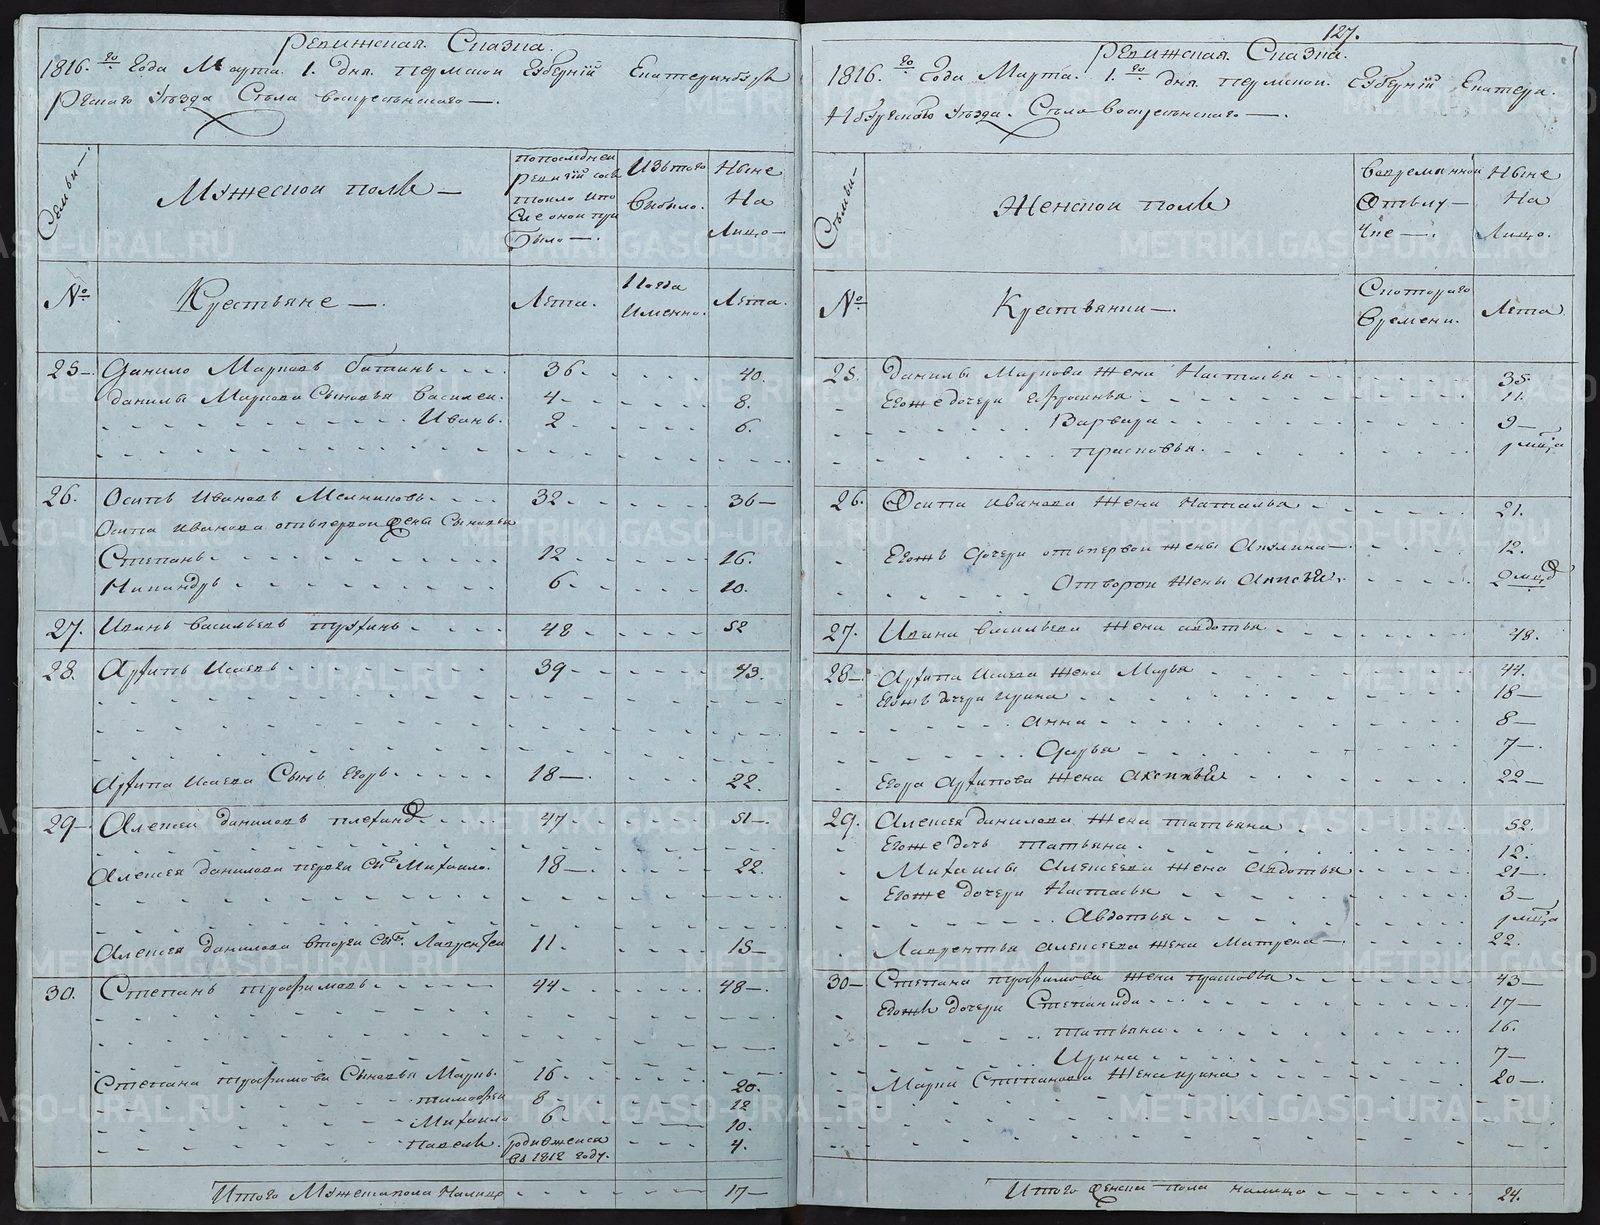 Ревижская Сказка.
1816.го Года Марта. 1. дня. пермской Губернiй Екатеринбург
скаго Уезда Села воскресенскаго —.
Семьи —.
Мужеской поле —
По последней ревизiй состояло и после оной прибыло —.
Изътого Выбыло.
Ныне На Лицо —
№
Крестьяне —.
Лета.
Когда Именно.
Лета.
25 — Данило Марковъ батинъ 36 40.
Данилы Маркова Сыновья Василеи. 4 8.
Иванъ. 2 6.
26. Осипъ Ивановъ Мелниковъ 32 36 —
Осипа Иванова отъпервой жены Сыновья
Степанъ 12 16.
Никандръ 6 10.
27. Иванъ Васильевъ 48 52
28. Архипъ Исаевъ 39 43.
Архипа Исаева Сынъ Егоръ 18 —. 22.
29 — Алексеи даниловъ плехановъ 47 51 —
Алексея данилова первой Сынъ Михаило. 18 —. 22.
Алексея данилова второй Сынъ Лаврентеи 11. 15 —
30. Степанъ трофимовъ 44 48 —.
Степана трофимова Сыновья Маркъ. 16 20.
тимофеи 8 12
Михаило 6 10.
Павелъ. родившеися въ 1812 году. 4.
Итого Мужеска пола Налицо 17 —
127.
Ревижская Сказка.
1816.го Года Марта. 1.го дня. пермской Губернiй Екатерин
нбургскаго Уезда. Села воскресенскаго —.
Семьи —
Женской поле
Вовременной Отълучке —.
Ныне На Лицо.
№
Крестьянки —.
Скотораго Времени.
Лета
25. Данилы Маркова Жена Настасья 35.
Егоже дочери Ефросинья 11.
Варвара 9 —
прасковья. 1 мца
26. Осипа Иванова Жена Наталья 21.
Егожъ дочери отъпервой жены Акулина — 12.
От второй жены 2 мца
27. Ивана васильева Жена авдотья 48.
28 — Архипа Исаева Жена Марья 44.
Егожъ дочери Ирина 18 —
Анна 8 —
Дарья 7 —.
Егора Архипова Жена Аксинья 22 —
29. Алексея данилова Жена татьяна 52.
Егоже дочь татьяна. 12.
Михаилы Алексеева Жена Авдотья 21 —
Егоже дочери Настасья 3 —
Авдотья 1 мца
Лаврентья алексеева Жена Матрена — 22.
30 — Степана трофимова Жена прасковья 43 —
Егожъ дочери Степанида 17 —
татьяна 16.
Ирина 7 —
Марка Степанова Жена ирина 20 —.
Итого женска пола налицо 24.